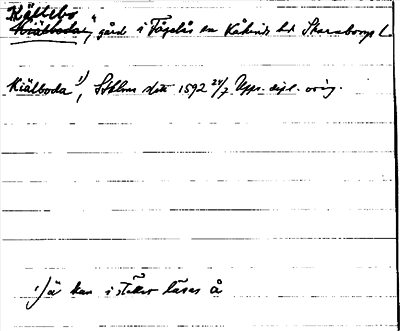 Kältebo
Kiälboda, gård i Fågelås sn Kåkinds hd Skaraborgs l.
Kiälboda ¹), Sthlm 1592 24/7 Upps. dipl. orig.
¹) ä kan i st. läsas å